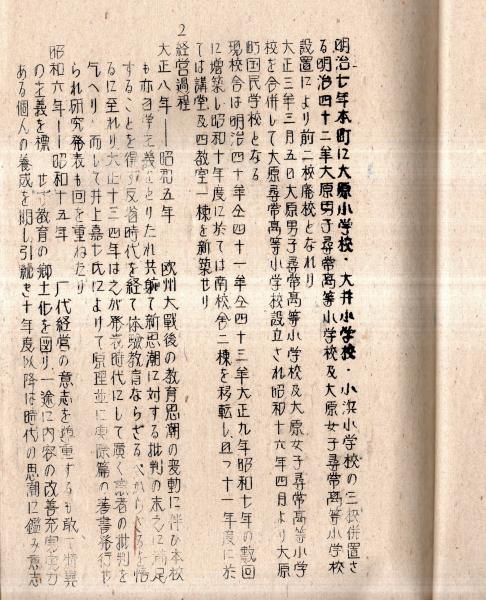 明治七年本町に大原小学校・大井小学校・小浜小学校の三校併置さ
る明治四十二年大原男子尋常高等小学校及大原女子尋常高等小学校
設置により前二校廃校となれり
大正三年三月五日大原男子尋常高等小学校及大原女子尋常高等小学
校を合併して大原尋常高等小学校設立され昭和十六年四月より大原
町国民学校となる
現校舎は明治四十年仝四十一年仝四十三年大正九年昭和七年の数回
に増築し昭和十年度に於ては南校舎二棟を移転し且つ十一年度に於
ては講堂及四教室一棟を新築せり
2
経営過程
大正八年―昭和五年 欧州大戦後の教育思潮の変動に伴ひ本校
も亦自学主義をとりたれ共軈て新思潮に対する批判の末之に満足
することを得ず反省時代を経て体験教育ならざるべからざるを悟
るに至れり大正十三四年は之が発表時代にして広く識者の批判を
乞へり 而して井上嘉七氏によりて原理並に実際篇の著書発行せ
られ研究発表も回を重ねたり
昭和六年―昭和十五年 代経営の意志を尊重するも敢て
の主義を標 せず教育の郷土化を図り一途に内容の改善充実
ある個人の養成を期し引続き十年度以降は時代の思潮に鑑み意志